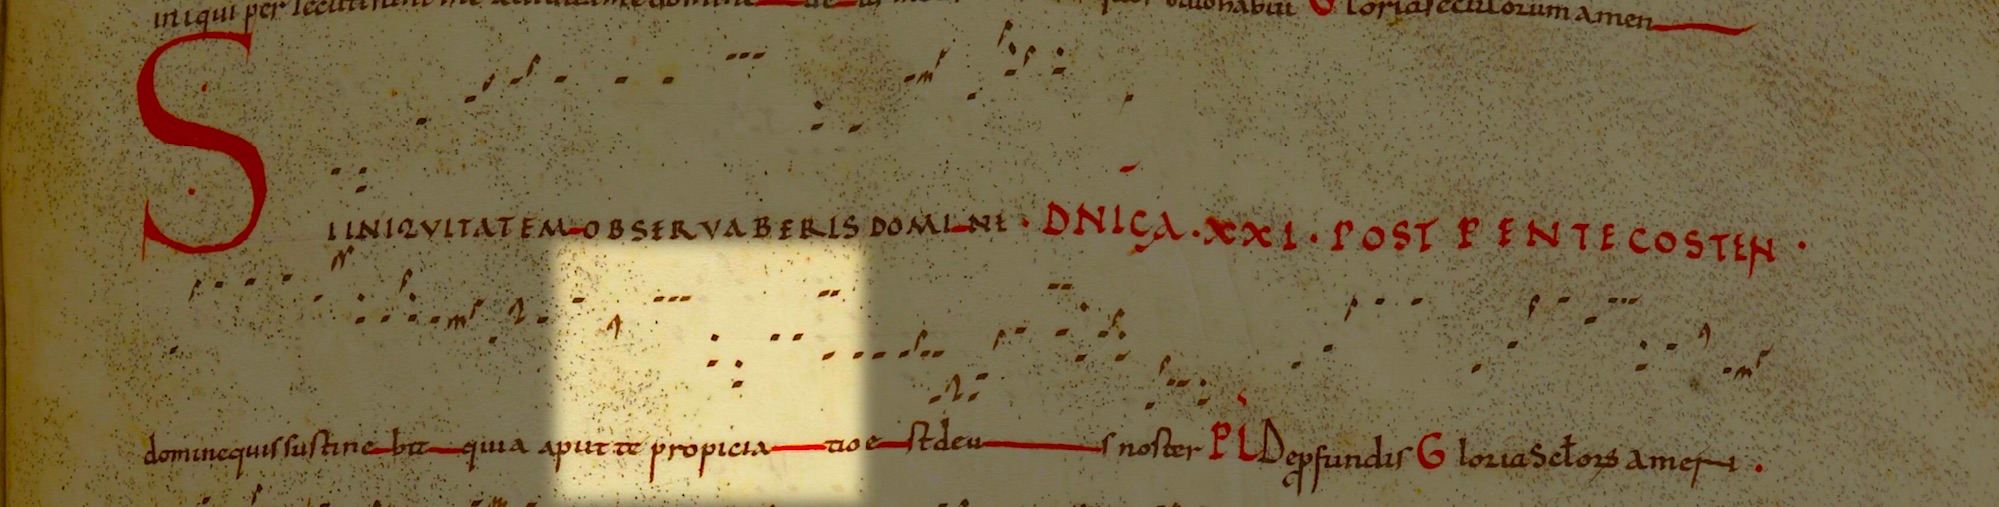 iniqui persecuti sunt me
quis dabit Gloria seculorum amen
SI INIQVITATEM OBSERVABERIS DOMINE · DNICA · XXI · POST PENTECOSTEN ·
domine quis sustinebit quia aput te propiciatio est deus noster PL De pfundis G loria sclors amen ·